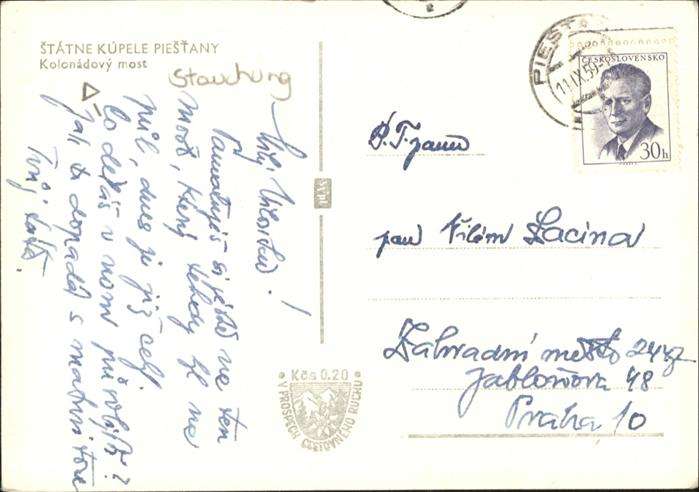 ŠTÁTNE KÚPELE PIEŠŤANY
Kolonádový most
Stankung
Milý !
Pamatuješ si ještě na ten
most, který tehdy byl na
půl, dnes je již celý.
Co děláš v nom působišti?
Jak to dopadá s maturitou
Tvůj
SVPL
Kčs 0.20
V PROSPECH CESTOVNÉHO RUCHU
PIEŠŤA
11.IX.59
ČESKOSLOVENSKO
30h
P. T. panu
pan Vilém Lacina
Zahradní město
Jabloňová 48
Praha 10